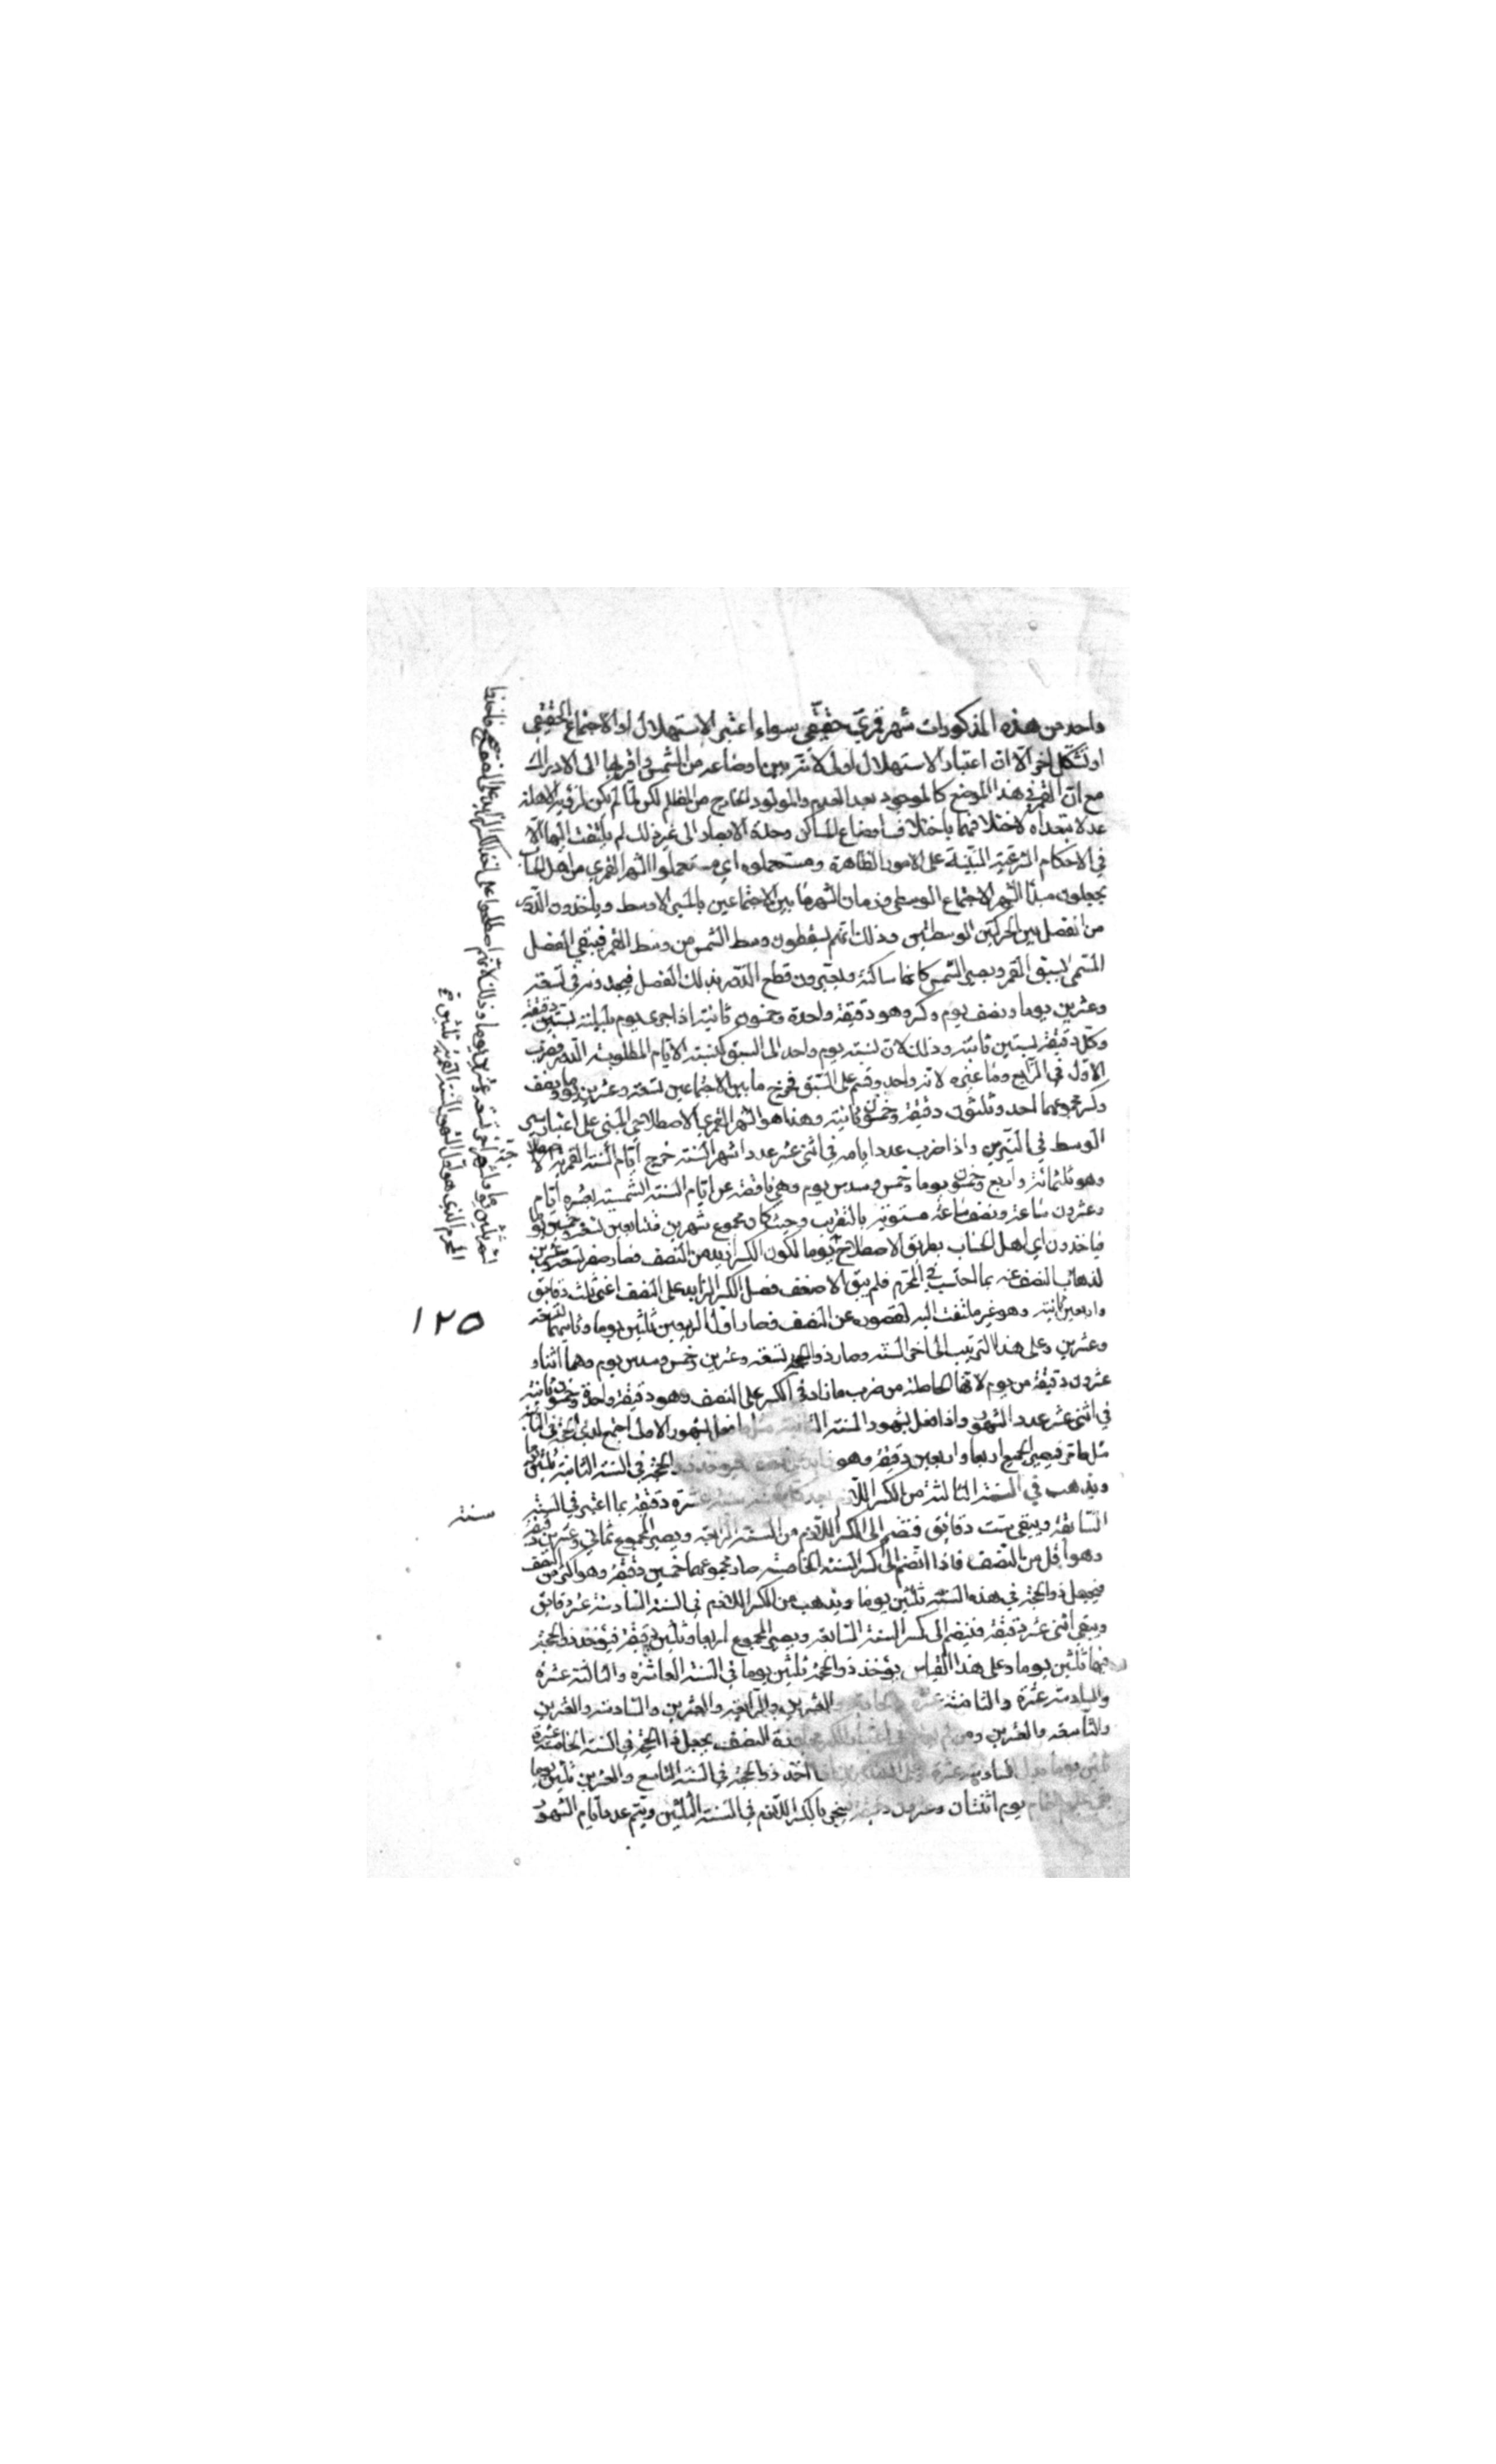 واحد من هذه المذكورات شهر قمري حقيقي سواء اعتبر الاستهلال او الاجتماع الحقيقي
او تشكل اخر الا ان اعتبار الاستهلال اولى لانه ابين اوضاعه من الشمس واقربها الى الادراك
مع ان القمر في هذا الموضع كالموجود بعد العدم والمولود الخارج من الظلم لكن لما لم يكن لرؤية الاهلة
حد لا يتعداه لاختلافها باختلاف اوضاع المساكن وحدة الابصار الى غير ذلك لم يلتفت اليها الا
في الاحكام الشرعية المبنية على الامور الظاهرة ومستعملوه اي مستعملوا الشهر القمري من اهل الحساب
يجعلون مبدأ الشهر الاجتماع الوسطي وزمان الشهر ما بين الاجتماعين بالمسير الاوسط وياخذون
من الفضل بين الحركتين الوسطيين وذلك انهم يسقطون وسط الشمس من وسط القمر فيبقى الفضل
المسمى بسبق القمر ويصير الشمس كانها ساكنة ويعتبرون قطع الدور بذلك الفضل فيجدونه في تسعة
وعشرين يوما ونصف يوم وكسر وهو دقيقة واحدة وخمسون ثانية اذا جزى يوم بليلته بستين دقيقة
وكل دقيقة بستين ثانية وذلك لان نسبة يوم واحد الى السبق كنسبة الايام المطلوبة الى الدور فضرب
الاول في الرابع وما غيره لانه واحد وقسم على السبق فخرج ما بين الاجتماعين تسعة وعشرين يوما ونصف
وكسر مجموعهما احد وثلثون دقيقة وخمسون ثانية وهذا هو الشهر القمري الاصطلاحي المبني على اعتبار سير
الوسط في النيرين واذا ضرب عدد ايامه في اثنى عشر عدد اشهر السنة خرج ايام السنة القمرية
وهو ثلثمائة واربع وخمسون يوما وخمس وسدس يوم وهي ناقصة عن ايام السنة الشمسية بعشرة ايام
وعشرون ساعة ونصف ساعة مستوية بالتقريب وحينئذ كان مجموع شهرين متتابعين تسعة وخمسين يوما
فياخذون اي اهل الحساب بطريق الاصطلاح يوما لكون الكسر ازيد من النصف فصار صفر تسعة وعشرين
لذهاب النصف عنه بما احتسب في المحرم فلم يبق الا ضعف فضل الكسر الزايد على النصف اعني ثلث دقايق
واربعين ثانية وهو غير ملتفت اليه لقصوره عن النصف فصار اول الربيعين ثلثين يوما وثانيهما تسعة
وعشرين وعلى هذا الترتيب الى اخر السنة وصار ذو الحجة تسعة وعشرين وخمس وسدس يوم وهما اثنان و
عشرون دقيقة من يوم لانها الحاصلة من ضرب ما زاد في الكسر على النصف وهو دقيقة واحدة وخمسون ثانية
في اثنى عشر عدد الشهور واذا فعل بشهور السنة الثانية مثل ما فعل بشهور الاولى اجتمع
مثل ما مر فيصير الجميع اربعا واربعين دقيقة وهو ذو الحجة في السنة الثانية ثلثين يوما
ويذهب في السنة الثالثة من الكسر اللازم ستة عشرة دقيقة بما اعتبر في السنة
السابقة ويبقى ست دقائق فتضم الى الكسر اللازم من السنة الرابعة ويصير المجموع ثماني وعشرين دقيقة
وهو اقل من النصف فاذا انضم الى كسر السنة الخامسة صار مجموعهما خمسين دقيقة وهو اكثر من النصف
فيجعل ذو الحجة في هذه السنة ثلثين يوما ويذهب من الكسر اللازم في السنة السادسة عشر دقايق
ويبقى اثنى عشر دقيقة فتنضم الى كسر السنة السابعة ويصير المجموع اربعا وثلثين دقيقة فيؤخذ ذو الحجة
فيها ثلثين يوما وعلى هذا القياس يؤخذ ذو الحجة ثلثين يوما في السنة العاشرة والثالثة عشرة
والسادسة عشرة والثامنة عشرة والحادية والعشرين والرابعة والعشرين والسادسة والعشرين
والتاسعة والعشرين ومن لم النصف يجعل ذا الحجة في السنة الخامسة عشرة
ثلثين يوما بدل السادسة عشرة اخذ ذو الحجة في السنة التاسع والعشرين ثلثين يوما
يوم اثنتان وعشرون دقيقة ينجبر بالكسر اللازم في السنة الثلثين ويتم عدد ايام الشهور
اشهر ثلثين يوما
المحرم الذي هو اول الشهور السنة القمرية ثلثين
١٢٥
سنة